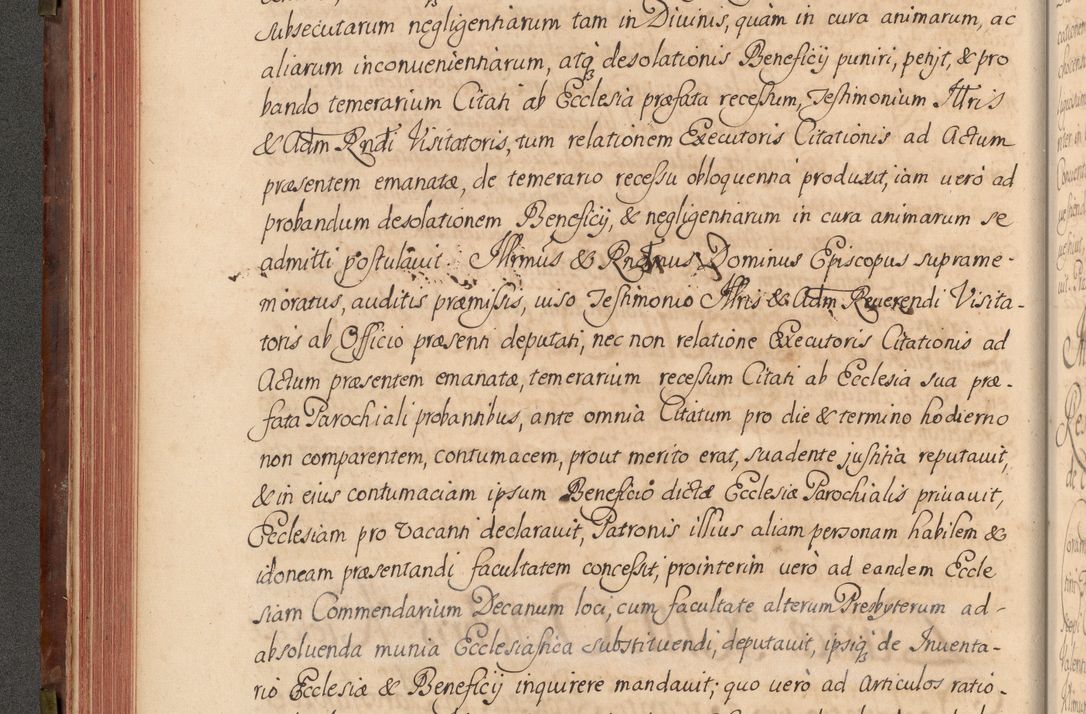 subsecutarum negligentiarum tam in Diuinis, quàm in cura animarum, ac
aliarum inconuenientiarum, atq₃ desolationis Beneficij puniri, petijt, & pro
bando temerarium Citati ab Ecclesia præfata recessum, Testimonium Illris
& Adm Rndi Visitatoris, tum relationem Executoris Citationis ad Actum
præsentem emanatæ, de temerario recessu obloquentia produxit, iam uerò ad
probandum desolationem Beneficij, & negligentiarum in cura animarum se
admitti postulauit. Illrmus & Rndmus Dominus Episcopus suprame-
moratus, auditis præmissis, uiso Testimonio Illris & Adm Reuerendi Visita-
toris ab Officio præsenti deputati, nec non relatione Executoris Citationis ad
Actum præsentem emanatæ, temerarium recessum Citati ab Ecclesia sua præ-
fata Parochiali probantibus, ante omnia Citatum pro die & termino hodierno
non comparentem, contumacem, prout merito erat, suadente justitia reputauit,
& in eius contumaciam ipsum Beneficiò dictæ Ecclesiæ Parochialis priuauit,
Ecclesiam pro vacanti declarauit, Patronis illius aliam personam habilem &
idoneam præsentandi facultatem concessit, prointerim uerò ad eandem Eccle
siam Commendarium Decanum loci, cum facultate alterum Presbyterum ad-
absoluenda munia Ecclesiastica substituendi, deputauit, ipsiq₃ de Inuenta-
rio Ecclesiæ & Beneficij inquirere mandauit; quo uerò ad articulos ratio-